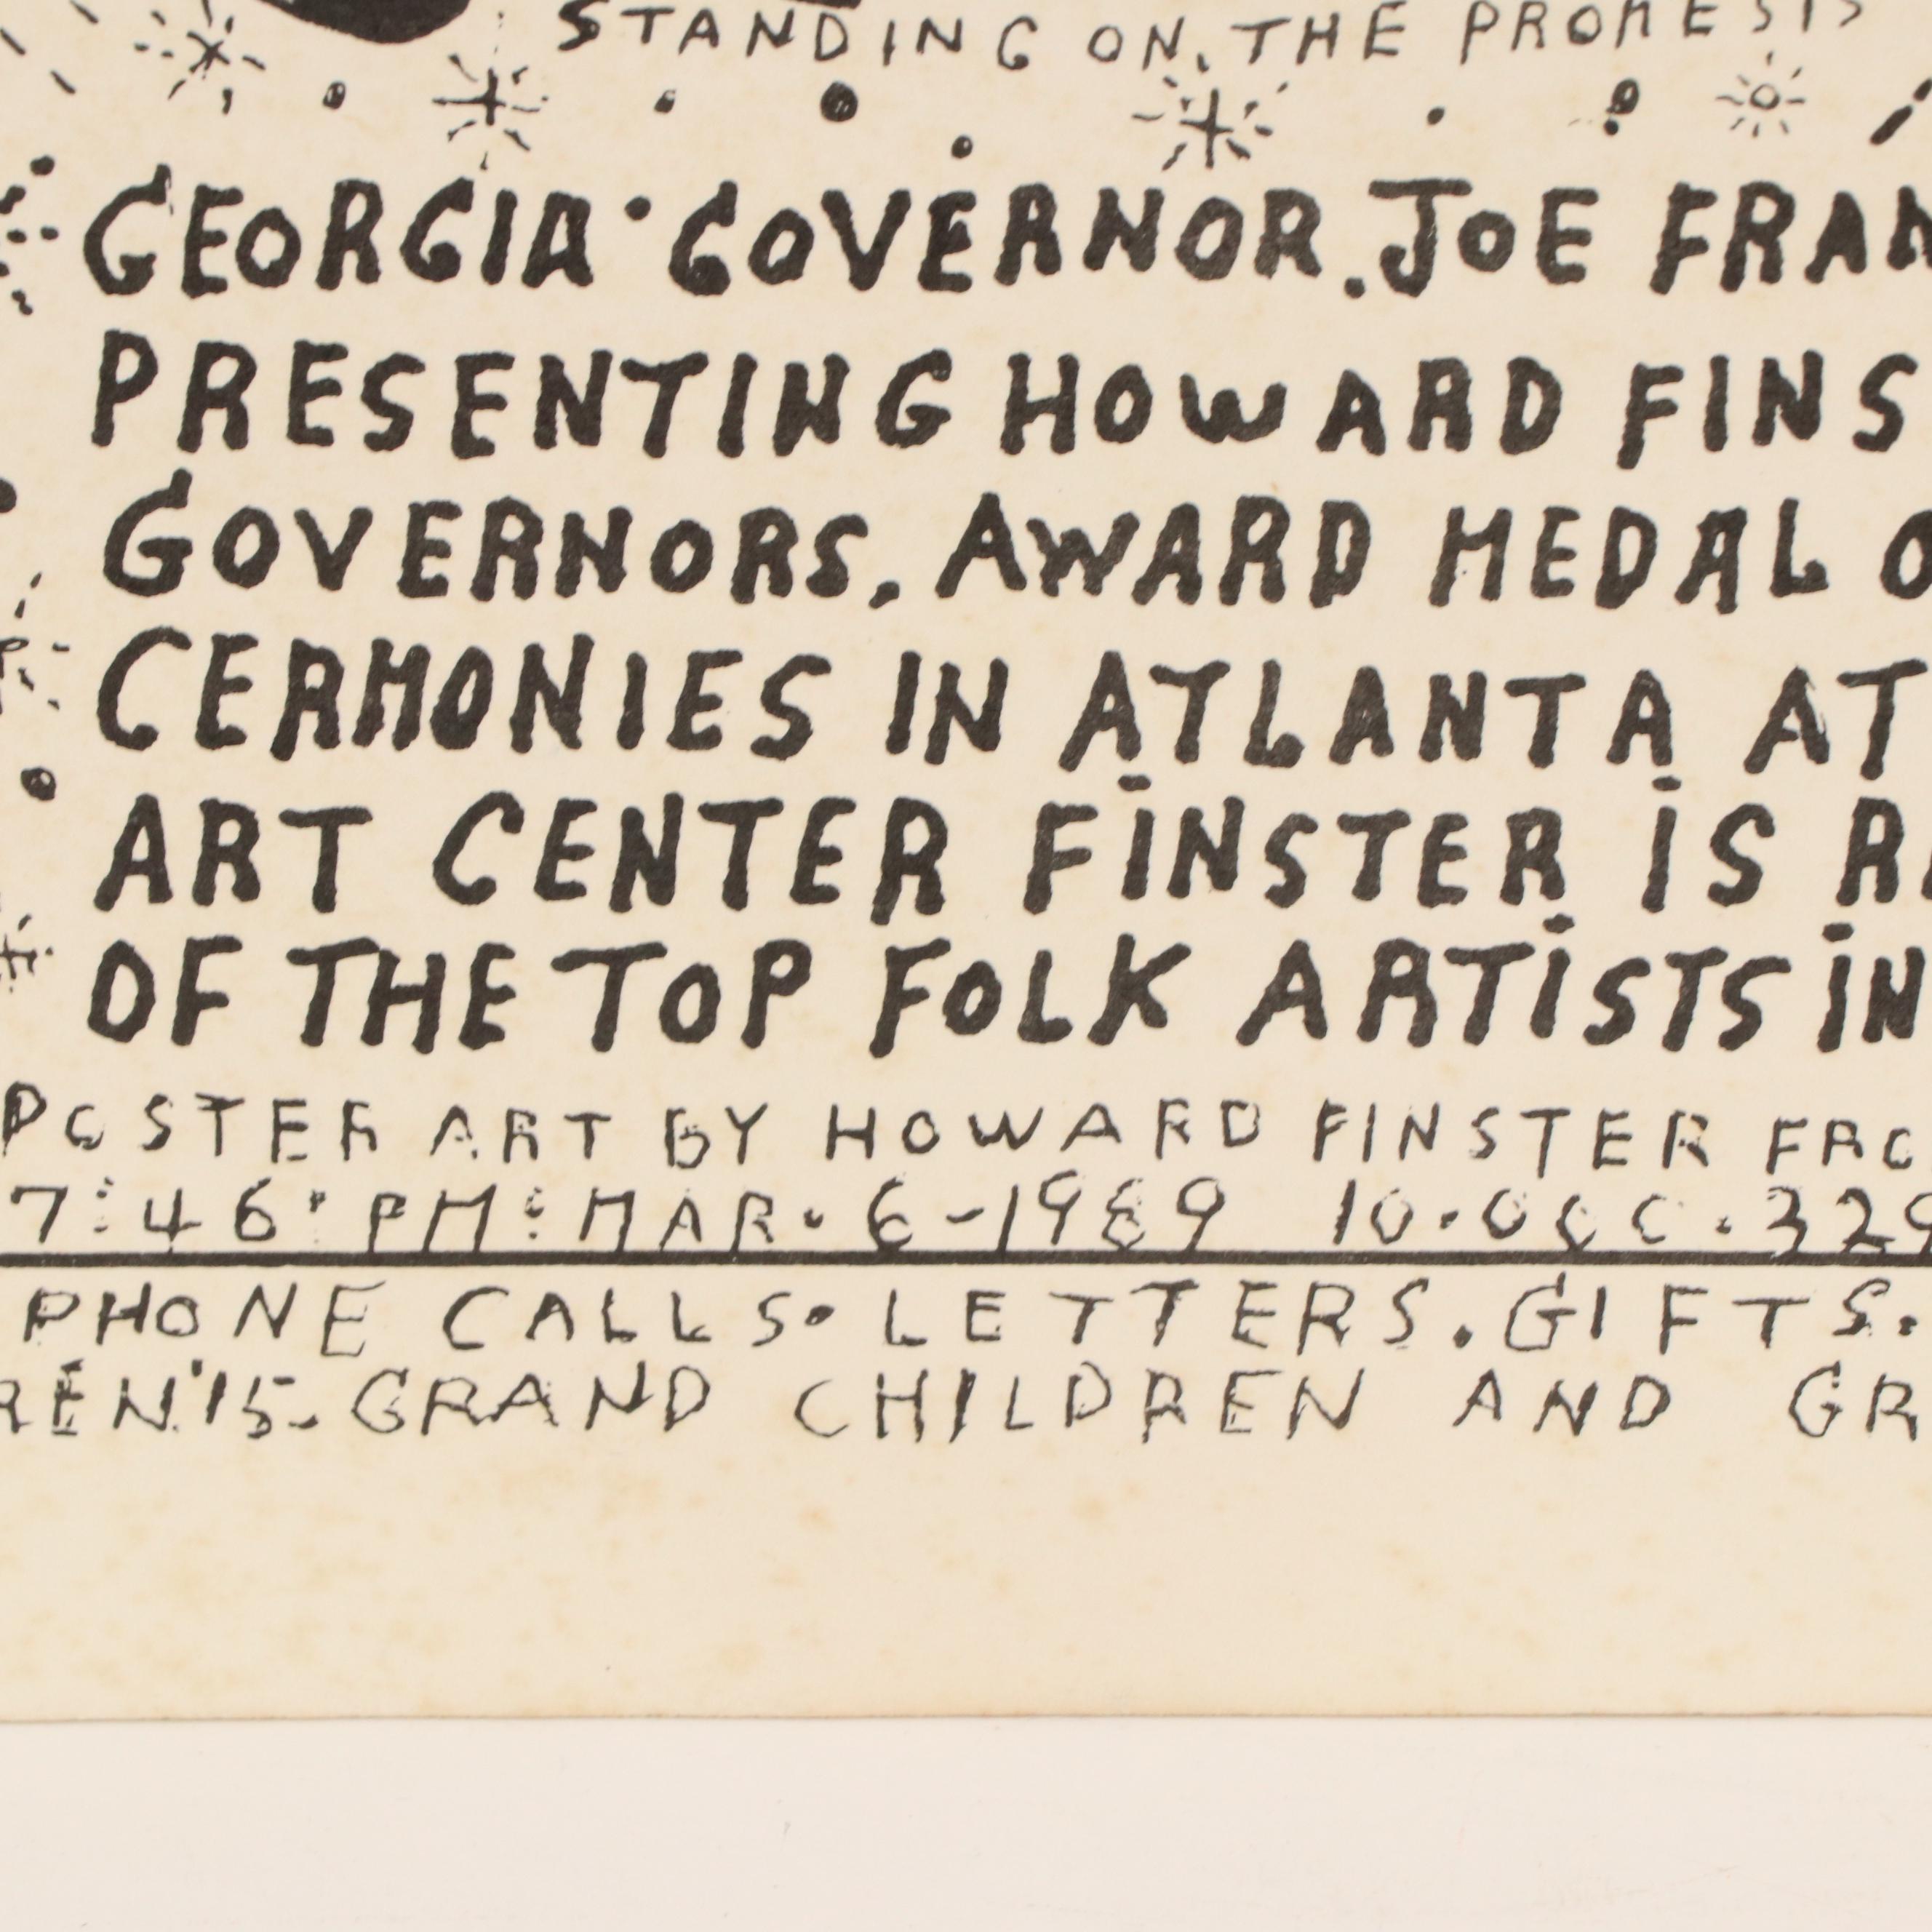 STANDING ON. THE PROMESIS
GEORGIA· GOVERNOR. JOE FRAN
PRESENTING HOWARD FINS
GOVERNORS. AWARD MEDAL O
CERMONIES IN ATLANTA AT
ART CENTER FINSTER IS R
OF THE TOP FOLK ARTISTS IN
POSTER ART BY HOWARD FINSTER FRO
7:46: PM: MAR. 6-1989 10.000.329
PHONE CALLS. LETTERS. GIFTS.
REN'15. GRAND CHILDREN AND GR